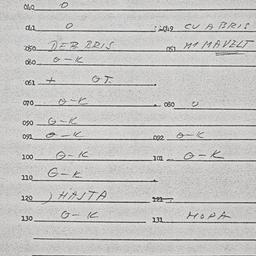 040 0
041 0 049 CU A BRIS
050 DEB BRIS 051
060 O-K
061 + OT.
070 O-K 080 0
090 O-K
091 O-K 092 O-K
100 O-K 101 O-K
110 O-K
120 ) HAITA 121
130 O-K 131 MOPA